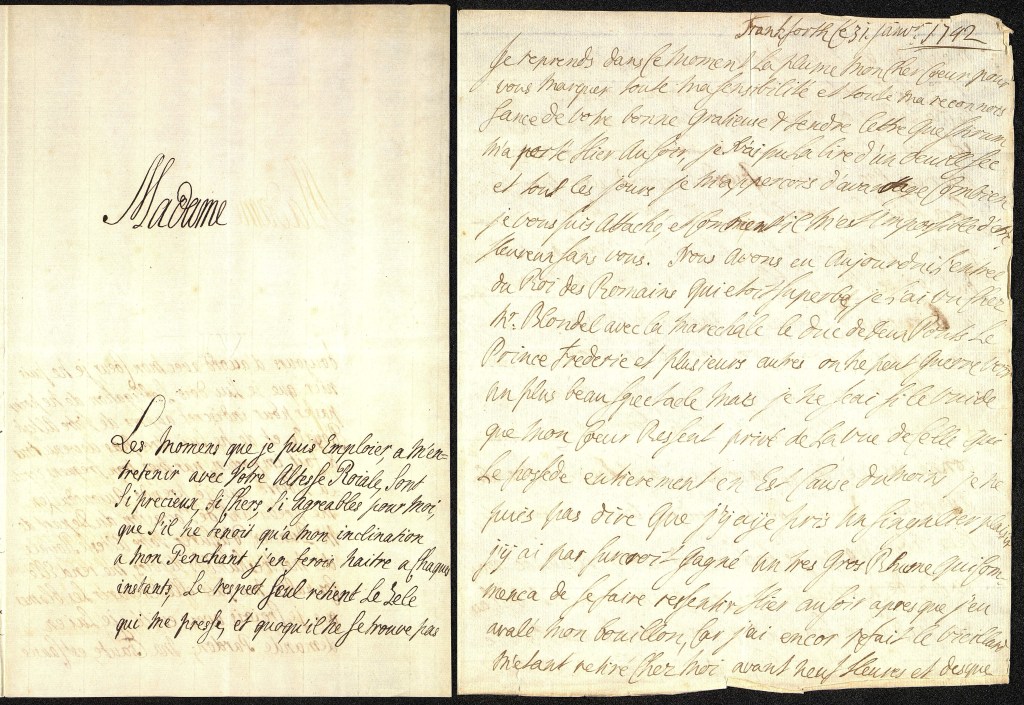 Madame
Les momens que je puis Emploier a m'en=
tretenir avec Votre Altesse Roiale, sont
si precieux, si chers, si agreables pour moi,
que s'il ne tenoit qu'a mon inclination
a mon Penchant j'en ferois naitre a chaques
instants, Le respect seul retient Le Zele
qui me presse, et quoqu'il ne se trouve pas
Frankforth le 31. janvr. 1742
Je reprends dans ce moment La plume mon cher Coeur pour
vous marquer toute ma sensibilité et toute ma reconnois
sance de votre bonne gratieuse & tendre lettre, que
m'a porté Hier au soir, je n'ai pu la lire d'un oeuil sec
et tout les jours je m'appercois d'avantage Combien
je vous suis attaché, et Comment il m'est impossible d'etre
Heureux sans vous. Nous avons eu aujourdhui l'entrée
du Roi des Romains qui etoit superbe, je l'ai vu chez
Mr. Blondel avec la marechale le duc de Deux Ponts Le
Prince Frederic et plusieurs autres on ne peut guerre voir
un plus beau spectacle mais je ne scai si le vuide
que mon Coeur Ressent privé de La vue de Celle qui
Le possede entierement en Est Cause du moins je ne
puis pas dire que j'y aije pris un singulier plaisir
j'y ai par surcroit gagné un tres gros Rhume qui Com=
menca de se faire ressentir Hier au soir apres que j'eu
avalé mon bouillon, Car j'ai encor refait le vieillard
m'etant retiré chez moi avant neuf Heures et desque